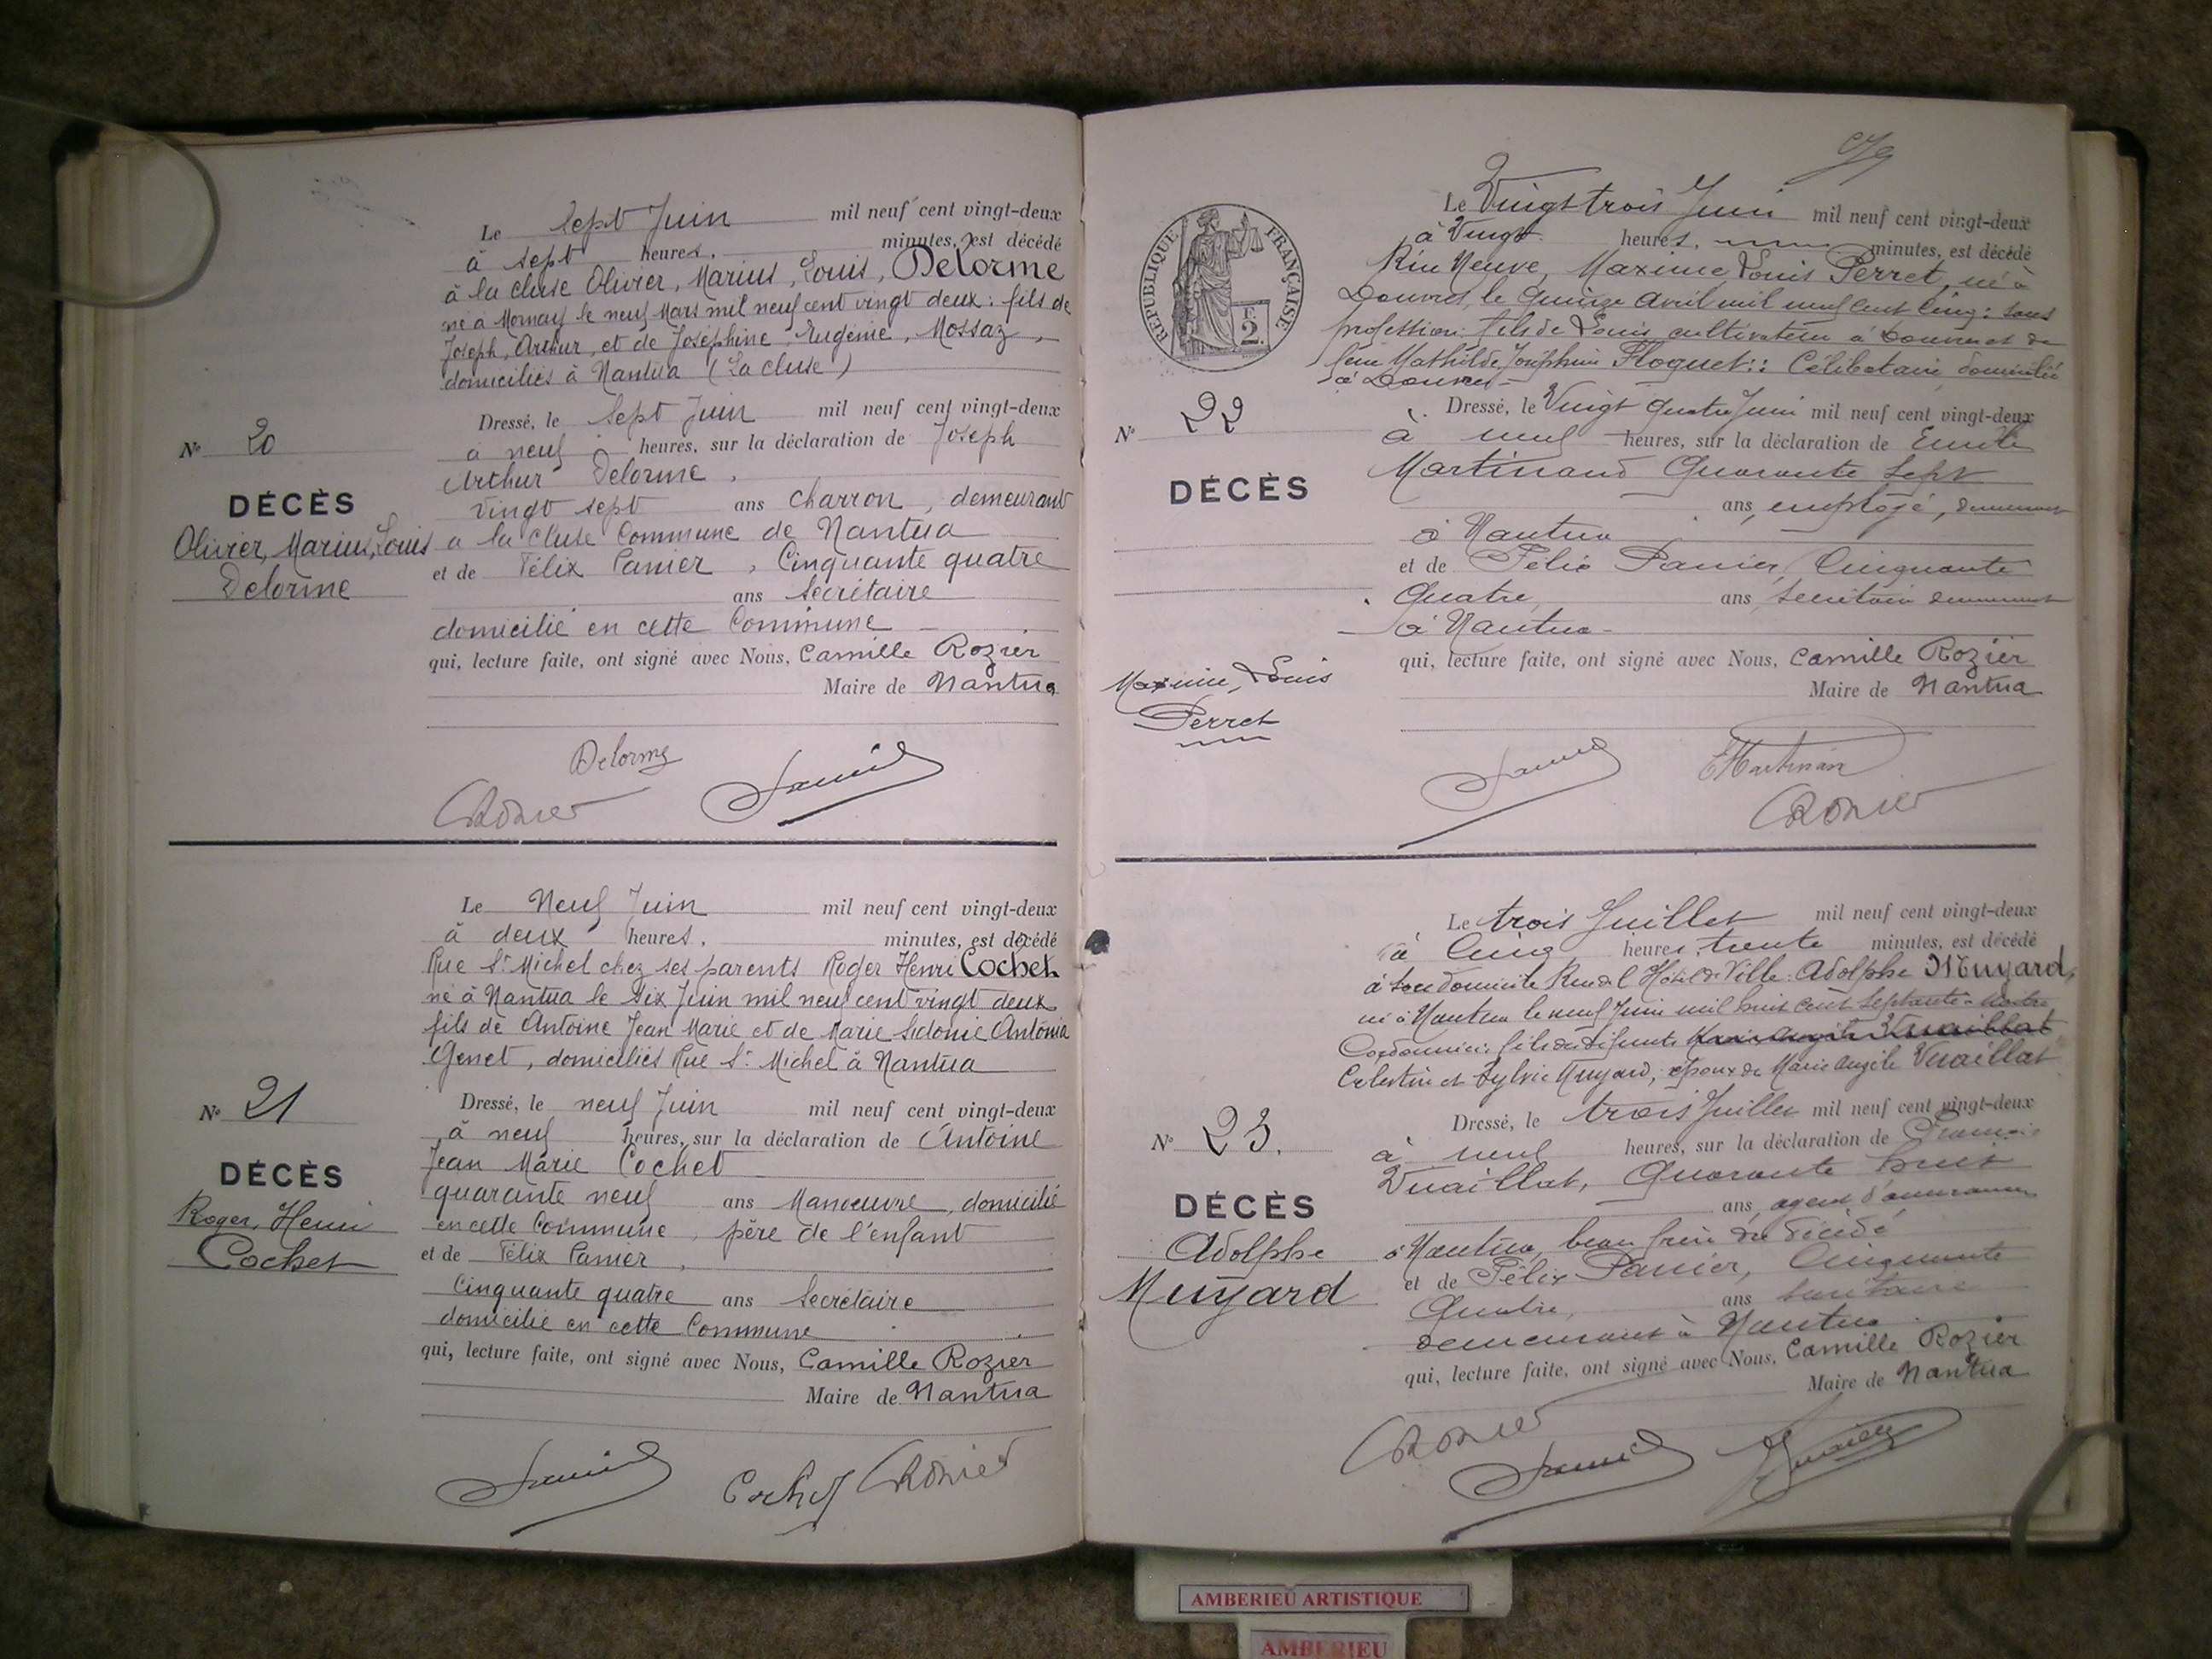 Le sept Juin mil neuf cent vingt-deux
à sept heures, minutes, est décédé
à la cluse Olivier, Marius, Louis, Delorme
né à Mornay le neuf Mars mil neuf cent vingt deux : fils de
Joseph, Arthur, et de Joséphine, Eugénie, Mossaz,
domiciliés à Nantua (La cluse)
Dressé, le sept Juin mil neuf cent vingt-deux
à neuf heures, sur la déclaration de Joseph
Arthur Delorme,
vingt sept ans charron, demeurant
a la cluse Commune de Nantua
et de Félix Panier, Cinquante quatre
ans Secrétaire
domicilié en cette Commune
qui, lecture faite, ont signé avec Nous, Camille Rozier
Maire de Nantua
No 20
DÉCÈS
Olivier, Marius, Louis
Delorme
Delorme
CRozier
Le Neuf Juin mil neuf cent vingt-deux
à deux heures, minutes, est décédé
Rue St Michel chez ses parents Roger Henri Cochet
né à Nantua le Six Juin mil neuf cent vingt deux
fils de Antoine Jean Marie et de Marie Sidonie Antonia
Genet, domiciliés Rue St Michel à Nantua
Dressé, le neuf Juin mil neuf cent vingt-deux
à neuf heures, sur la déclaration de Antoine
Jean Marie Cochet
quarante neuf ans Manoeuvre, domicilié
en cette Commune, père de l'enfant
et de Félix Panier,
Cinquante quatre ans Secrétaire
domicilié en cette Commune
qui, lecture faite, ont signé avec Nous, Camille Rozier
Maire de Nantua
No 21
DÉCÈS
Roger, Henri
Cochet
Cochet CRozier
RÉPUBLIQUE FRANÇAISE
F. 2.
Le Vingt trois Juin mil neuf cent vingt-deux
à Vingt heures, minutes, est décédé
Rue Neuve, Maxime Louis Perret, né à
Douvres, le quinze avril mil neuf cent cinq : sans
profession : fils de Louis cultivateur à Douvres et de
feue Mathilde Joséphine Floquet :: Célibataire domicilié
à Douvres
Dressé, le Vingt quatre Juin mil neuf cent vingt-deux
à neuf heures, sur la déclaration de Emile
Martinand Quarante Sept
ans, employé, demeurant
à Nantua
et de Félix Panier, Cinquante
Quatre, ans Secrétaire demeurant
à Nantua
qui, lecture faite, ont signé avec Nous, Camille Rozier
Maire de Nantua
No 22
DÉCÈS
Maxime, Louis
Perret
CRozier
Le trois Juillet mil neuf cent vingt-deux
à Cinq heures, trente minutes, est décédé
à son domicile Rue de l'Hôtel de Ville Adolphe Muyard,
né à Nantua le neuf Juin mil huit cent septante
Cordonnier : fils des défunts
Celestin et Sylvie Muyard, époux de Marie Angèle Vuaillat
Dressé, le trois Juillet mil neuf cent vingt-deux
à neuf heures, sur la déclaration de François
Vuaillat, Quarante huit
ans, agent d'assurances
à Nantua, beau frère du décédé
et de Félix Panier, Cinquante
Quatre, ans Secrétaire
demeurant à Nantua
qui, lecture faite, ont signé avec Nous, Camille Rozier
Maire de Nantua
No 23.
DÉCÈS
Adolphe
Muyard
CRozier
AMBERIEU ARTISTIQUE
AMBERIEU